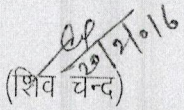 29/2/016
(शिव चन्द)